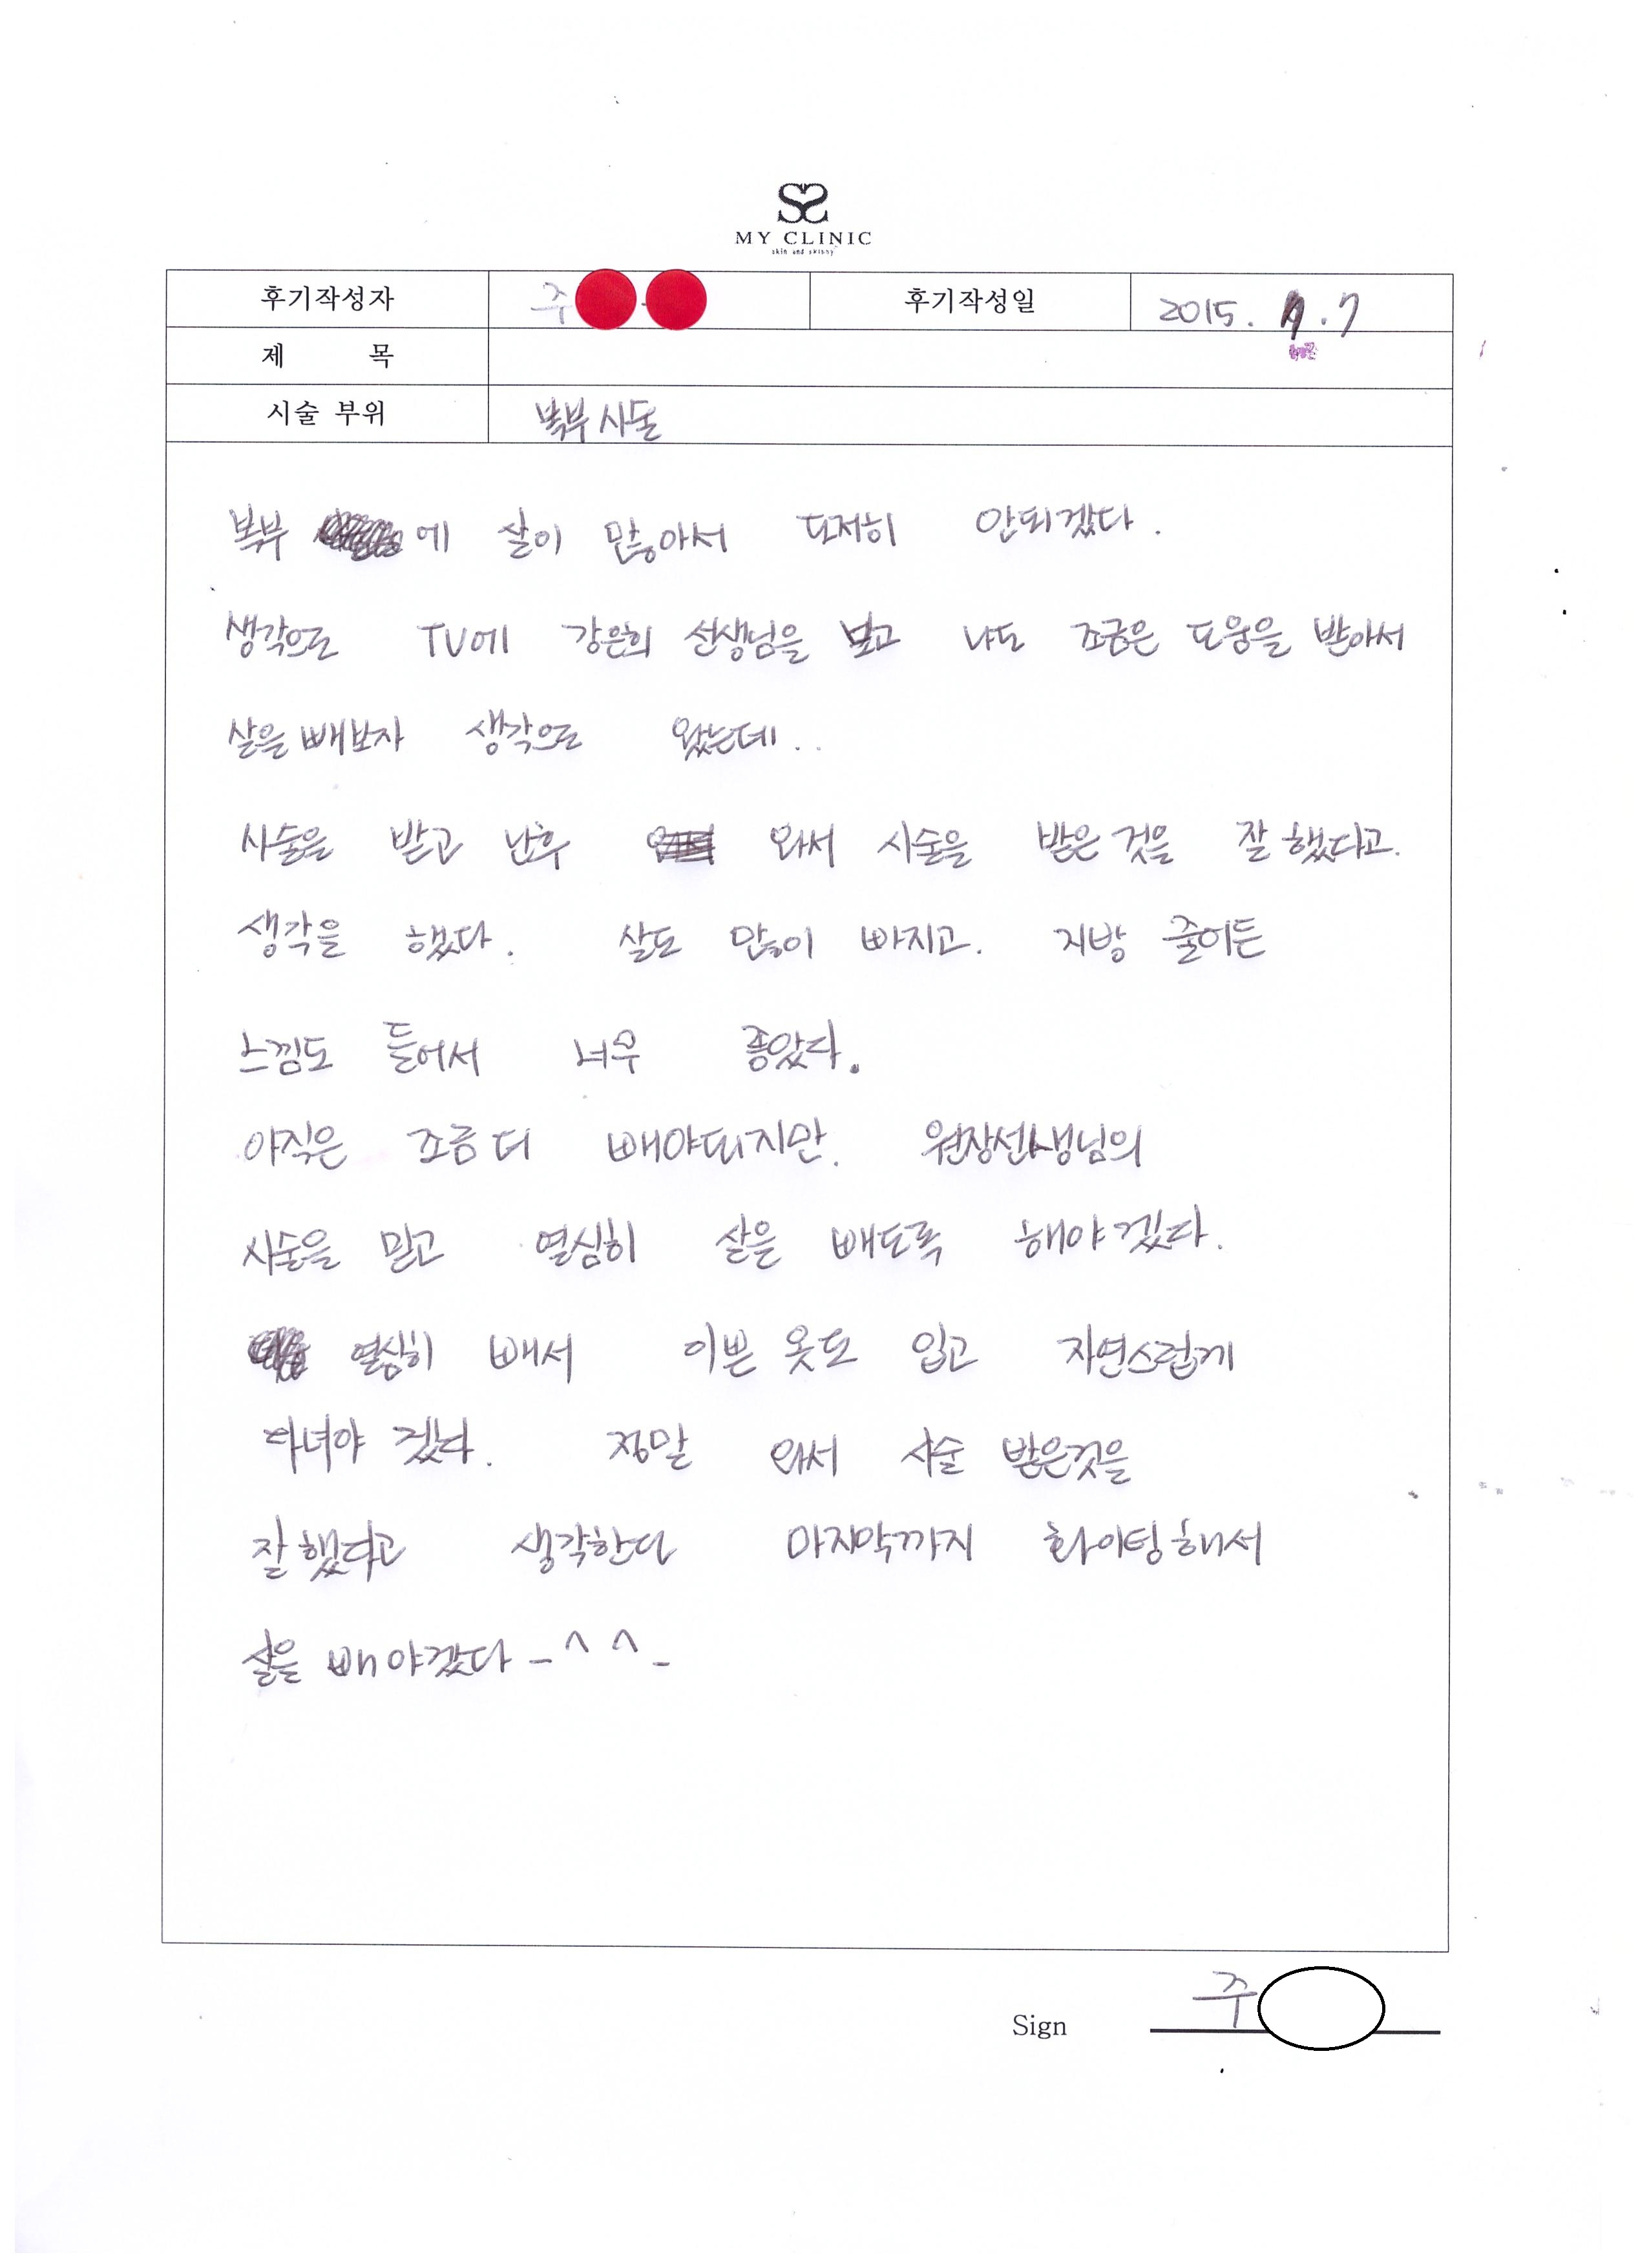 MY CLINIC
skin and skinny
후기작성자 주 후기작성일 2015. .7
제 목
시술 부위 복부 시술
복부 에 살이 많아서 도저히 안되겠다.
생각으로 TV에 강은희 선생님을 보고 나도 조금은 도움을 받아서
살을 빼보자 생각으로 왔는데..
시술을 받고 난후 와서 시술을 받은 것을 잘 했다고.
생각을 했다. 살도 많이 빠지고. 지방 줄어든
느낌도 들어서 너무 좋았다.
아직은 조금 더 빼야되지만. 원장선생님의
시술을 믿고 열심히 살을 빼도록 해야 겠다.
열심히 빼서 이쁜 옷도 입고 자연스럽게
다녀야 겠다. 정말 와서 시술 받은것을
잘 했다고 생각한다 마지막까지 화이팅 해서
살을 빼야겠다 -^^-
Sign 주